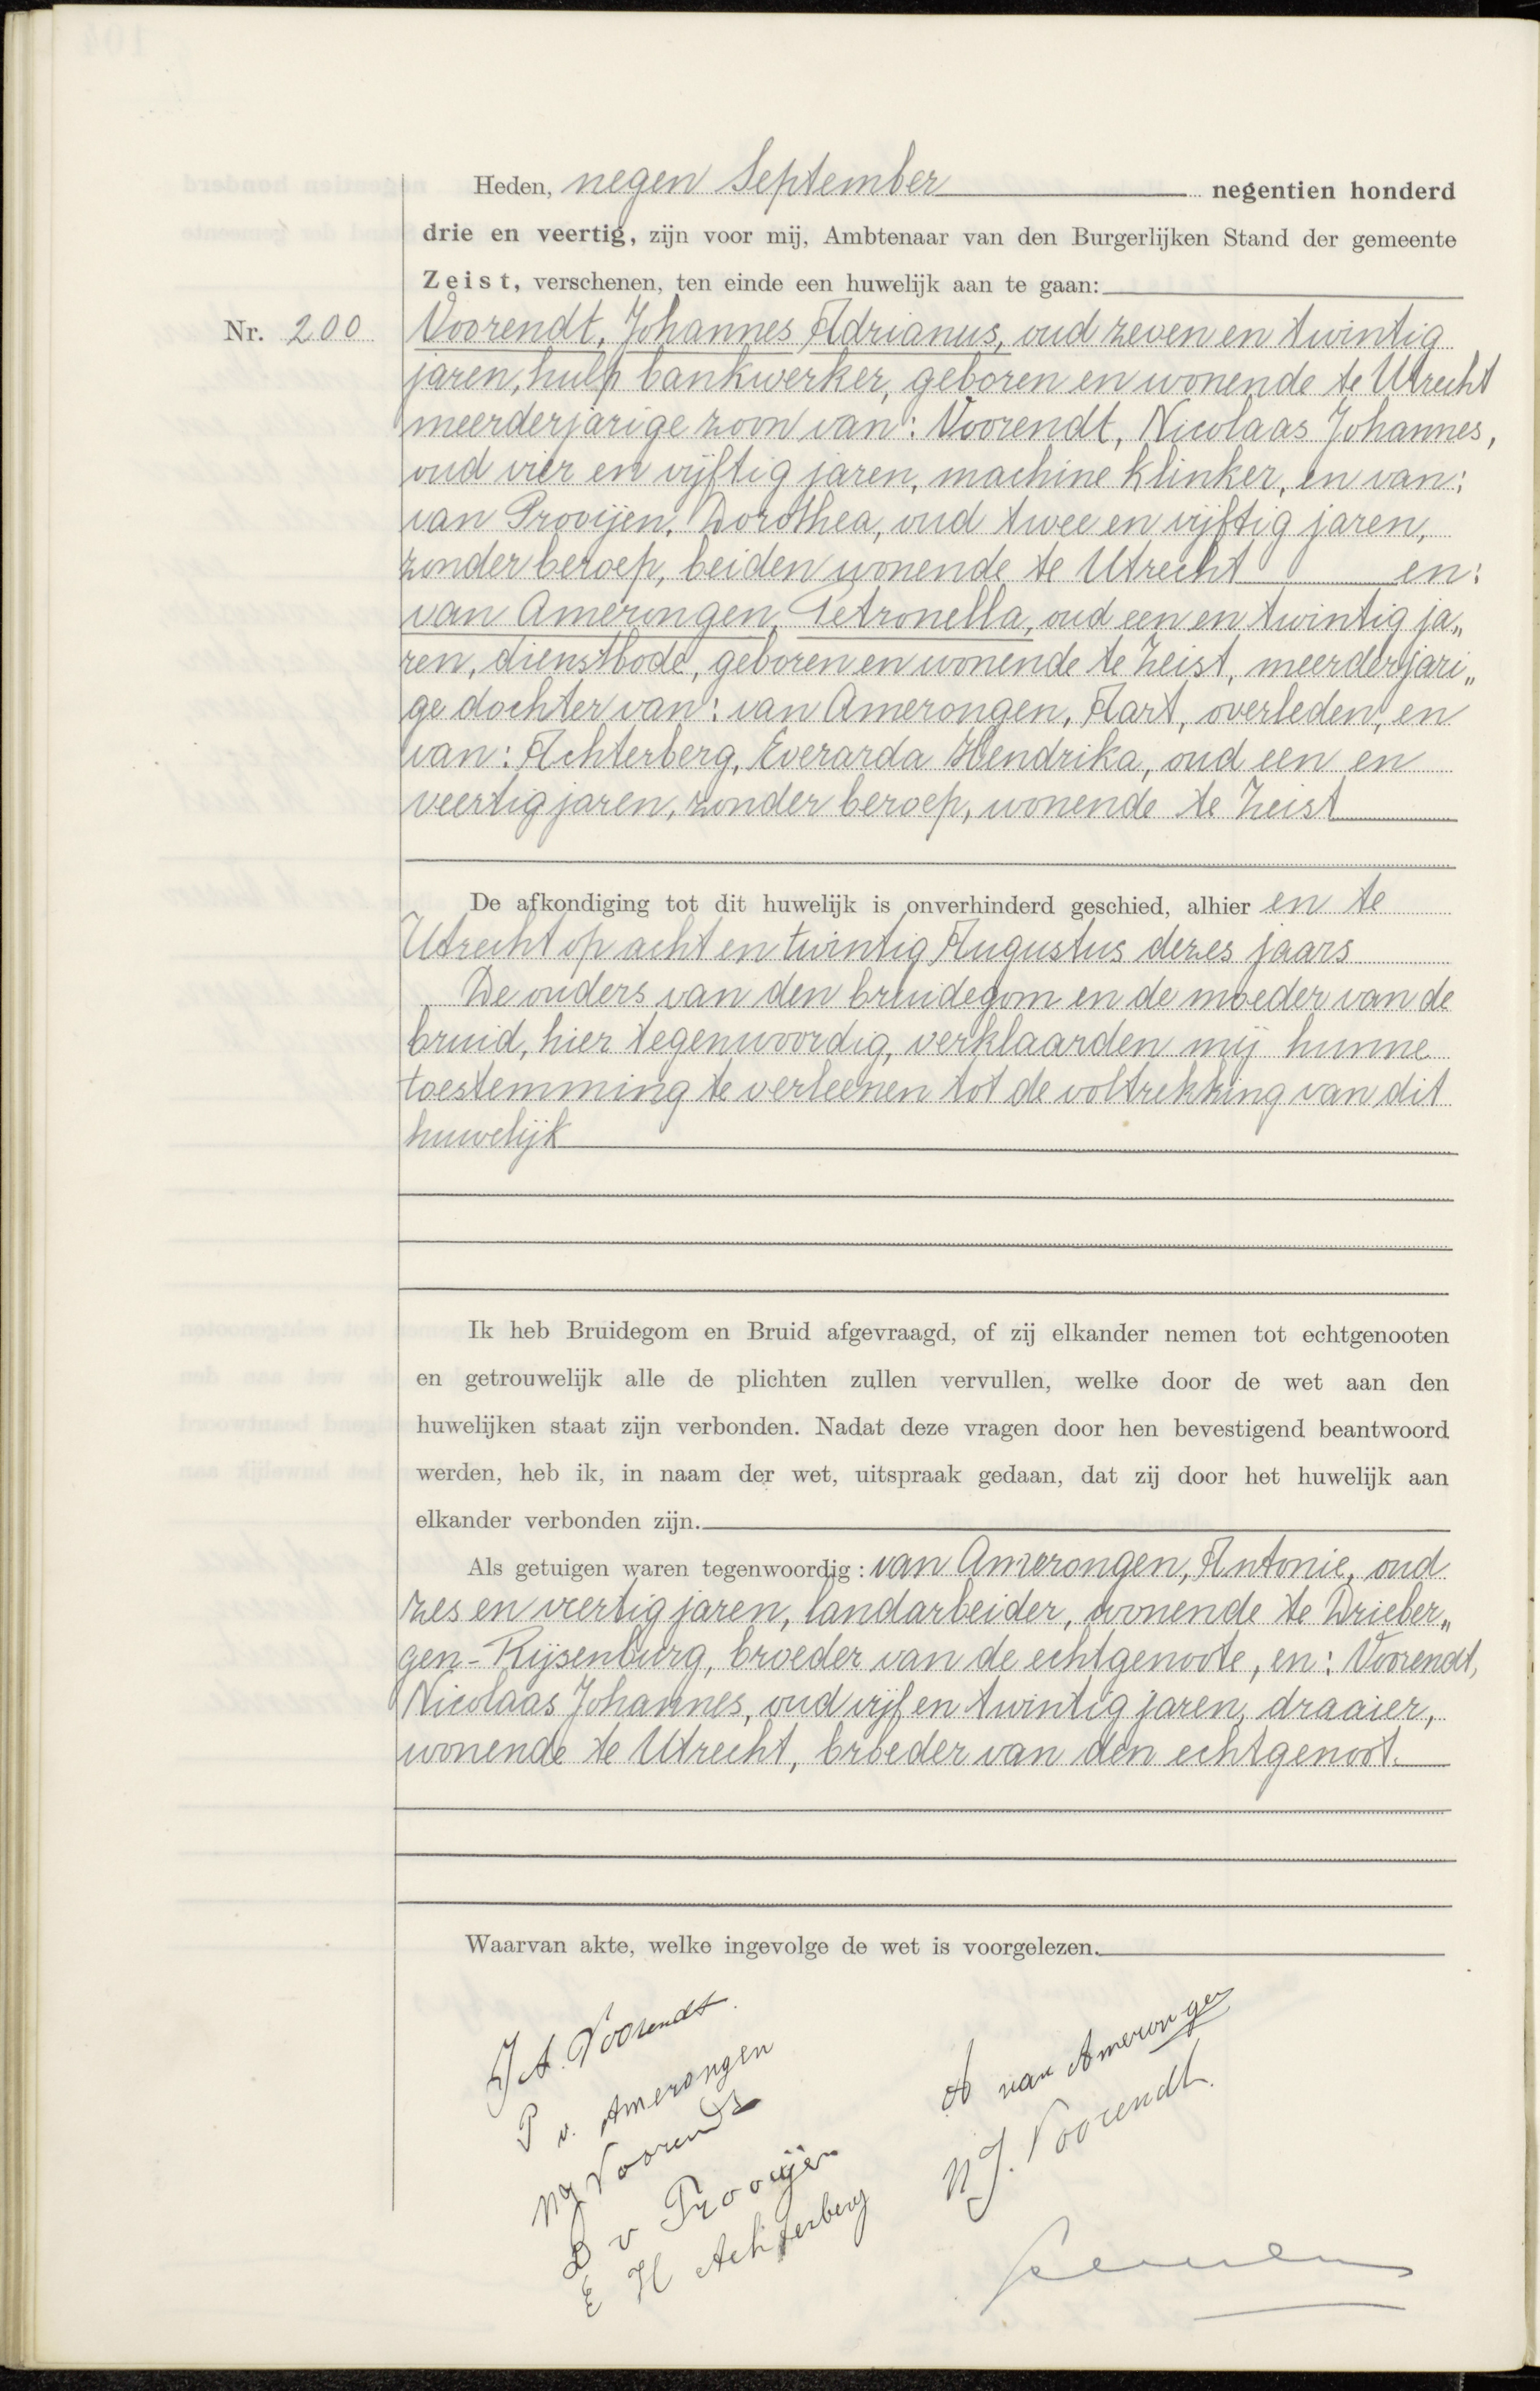 Heden, negen September negentien honderd
drie en veertig, zijn voor mij, Ambtenaar van den Burgerlijken Stand der gemeente
Zeist, verschenen, ten einde een huwelijk aan te gaan:
Nr. 200
Voorendt, Johannes Adrianus, oud zeven en twintig
jaren, hulp bankwerker, geboren en wonende te Utrecht
meerderjarige zoon van: Voorendt, Nicolaas Johannes,
oud vier en vijftig jaren, machine klinker, en van:
van Prooijen, Dorothea, oud twee en vijftig jaren,
zonder beroep, beiden wonende te Utrecht en:
van Amerongen, Petronella, oud een en twintig ja„
ren, dienstbode, geboren en wonende te Zeist, meerderjari„
ge dochter van: van Amerongen, Aart, overleden, en
van: Achterberg, Everarda Hendrika, oud een en
veertig jaren, zonder beroep, wonende te Zeist
De afkondiging tot dit huwelijk is onverhinderd geschied, alhier en te
Utrecht op acht en twintig Augustus dezes jaars
De ouders van den bruidegom en de moeder van de
bruid, hier tegenwoordig, verklaarden mij hunne
toestemming te verleenen tot de voltrekking van dit
huwelijk
Ik heb Bruidegom en Bruid afgevraagd, of zij elkander nemen tot echtgenooten
en getrouwelijk alle de plichten zullen vervullen, welke door de wet aan den
huwelijken staat zijn verbonden. Nadat deze vragen door hen bevestigend beantwoord
werden, heb ik, in naam der wet, uitspraak gedaan, dat zij door het huwelijk aan
elkander verbonden zijn.
Als getuigen waren tegenwoordig: van Amerongen, Antonie, oud
zes en veertig jaren, landarbeider, wonende te Drieber„
gen-Rijsenburg, broeder van de echtgenoote, en: Voorendt,
Nicolaas Johannes, oud vijf en twintig jaren, draaier,
wonende te Utrecht, broeder van den echtgenoot.
Waarvan akte, welke ingevolge de wet is voorgelezen.
J A. Voorendt.
P v. Amerongen
NJ Voorendt
D v Prooijen
E H Achterberg
A van Amerongen
N J. Voorendt.